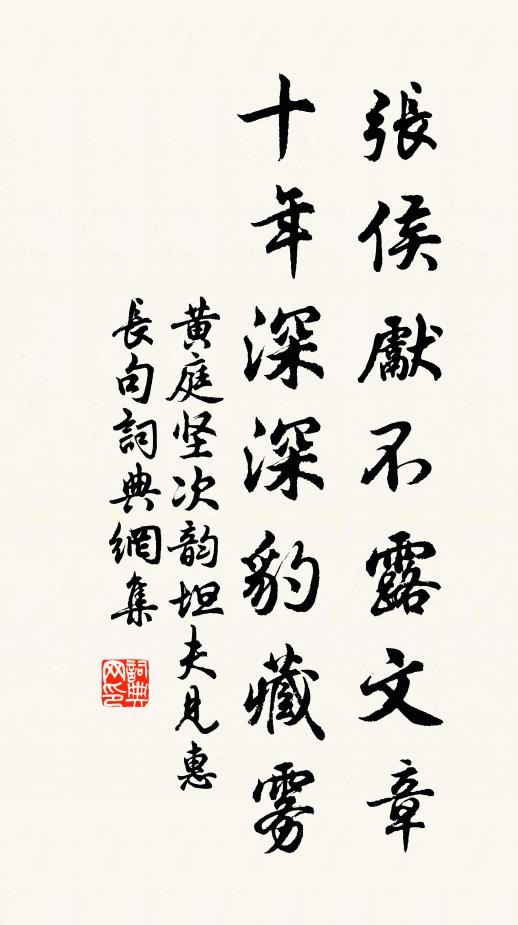 張侯獻不露文章
十年深深豹藏雾
黄庭坚次韵坦夫見惠
長句詞典網集
詞典网印